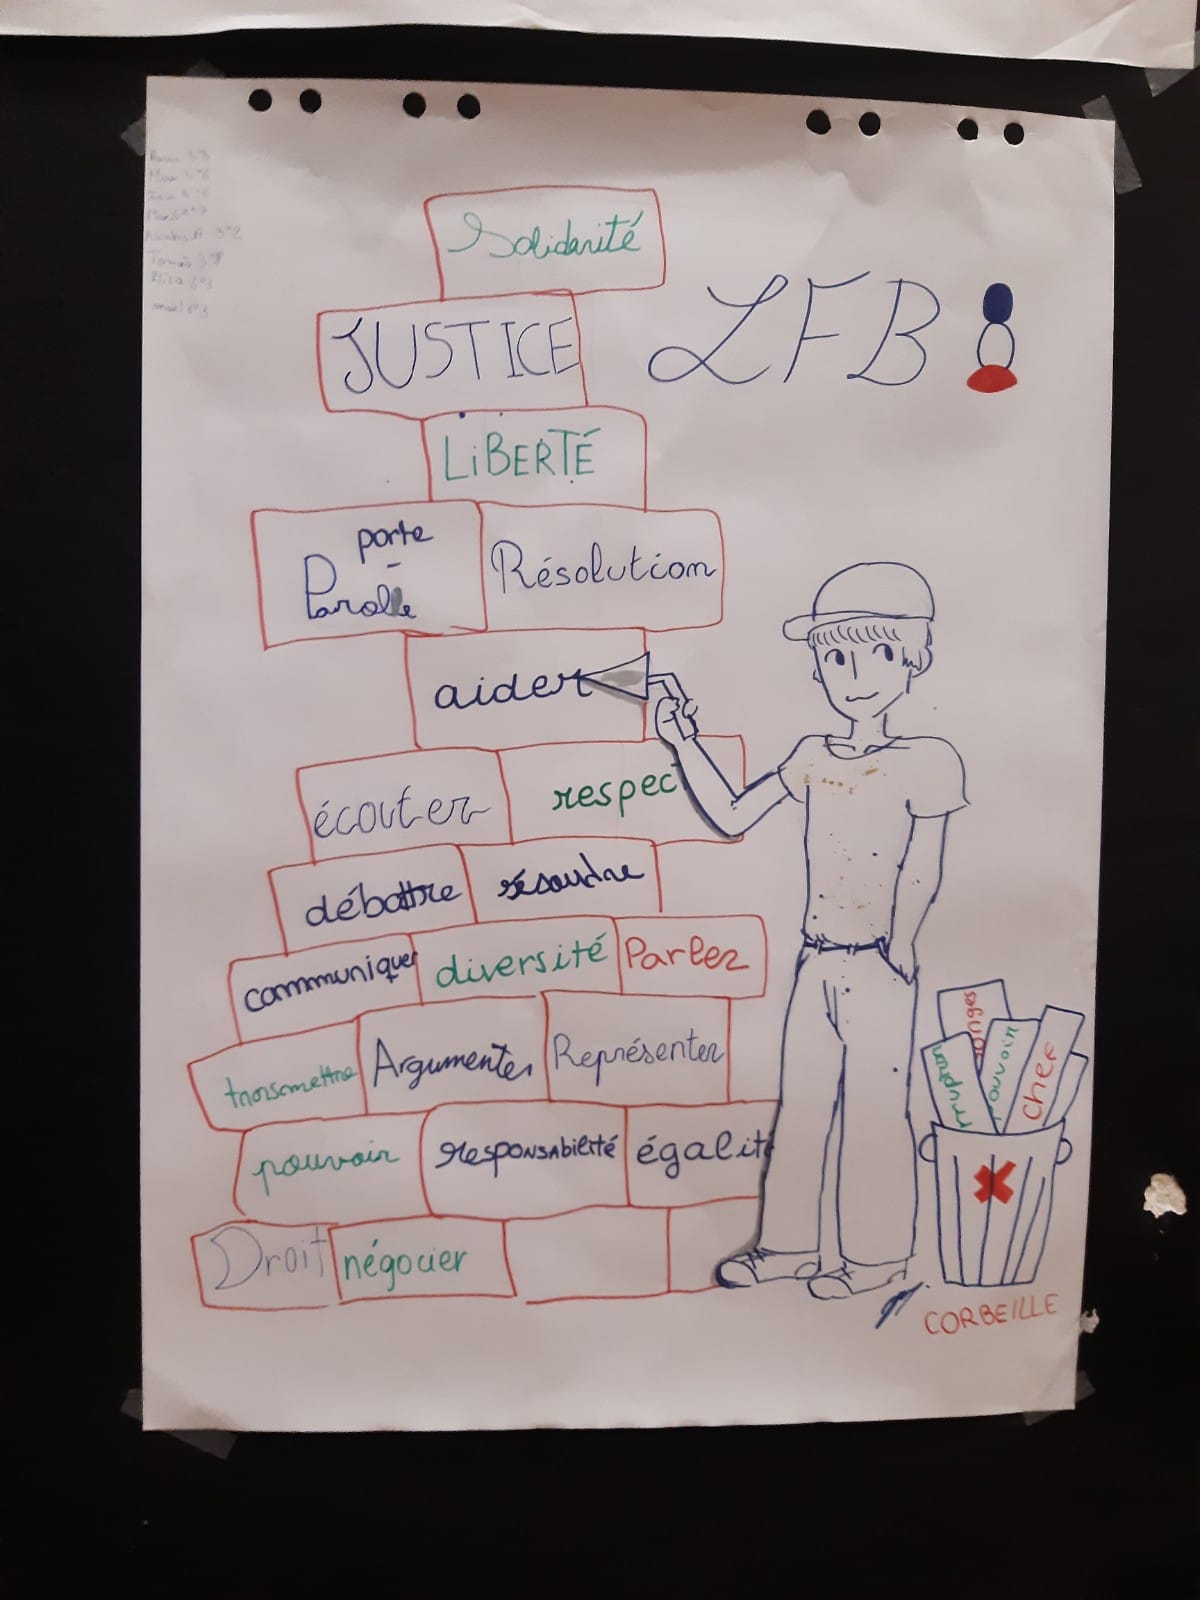 Solidarité
LFB
JUSTICE
LiBERTÉ
porte
-
Parole
Résolution
aider
écouter
respec
débattre
résoudre
communiquer
diversité
Parler
transmettre
Argumenter
Représenter
pouvoir
responsabilité
égalité
Droit
négocier
pouvoir
chef
CORBEILLE